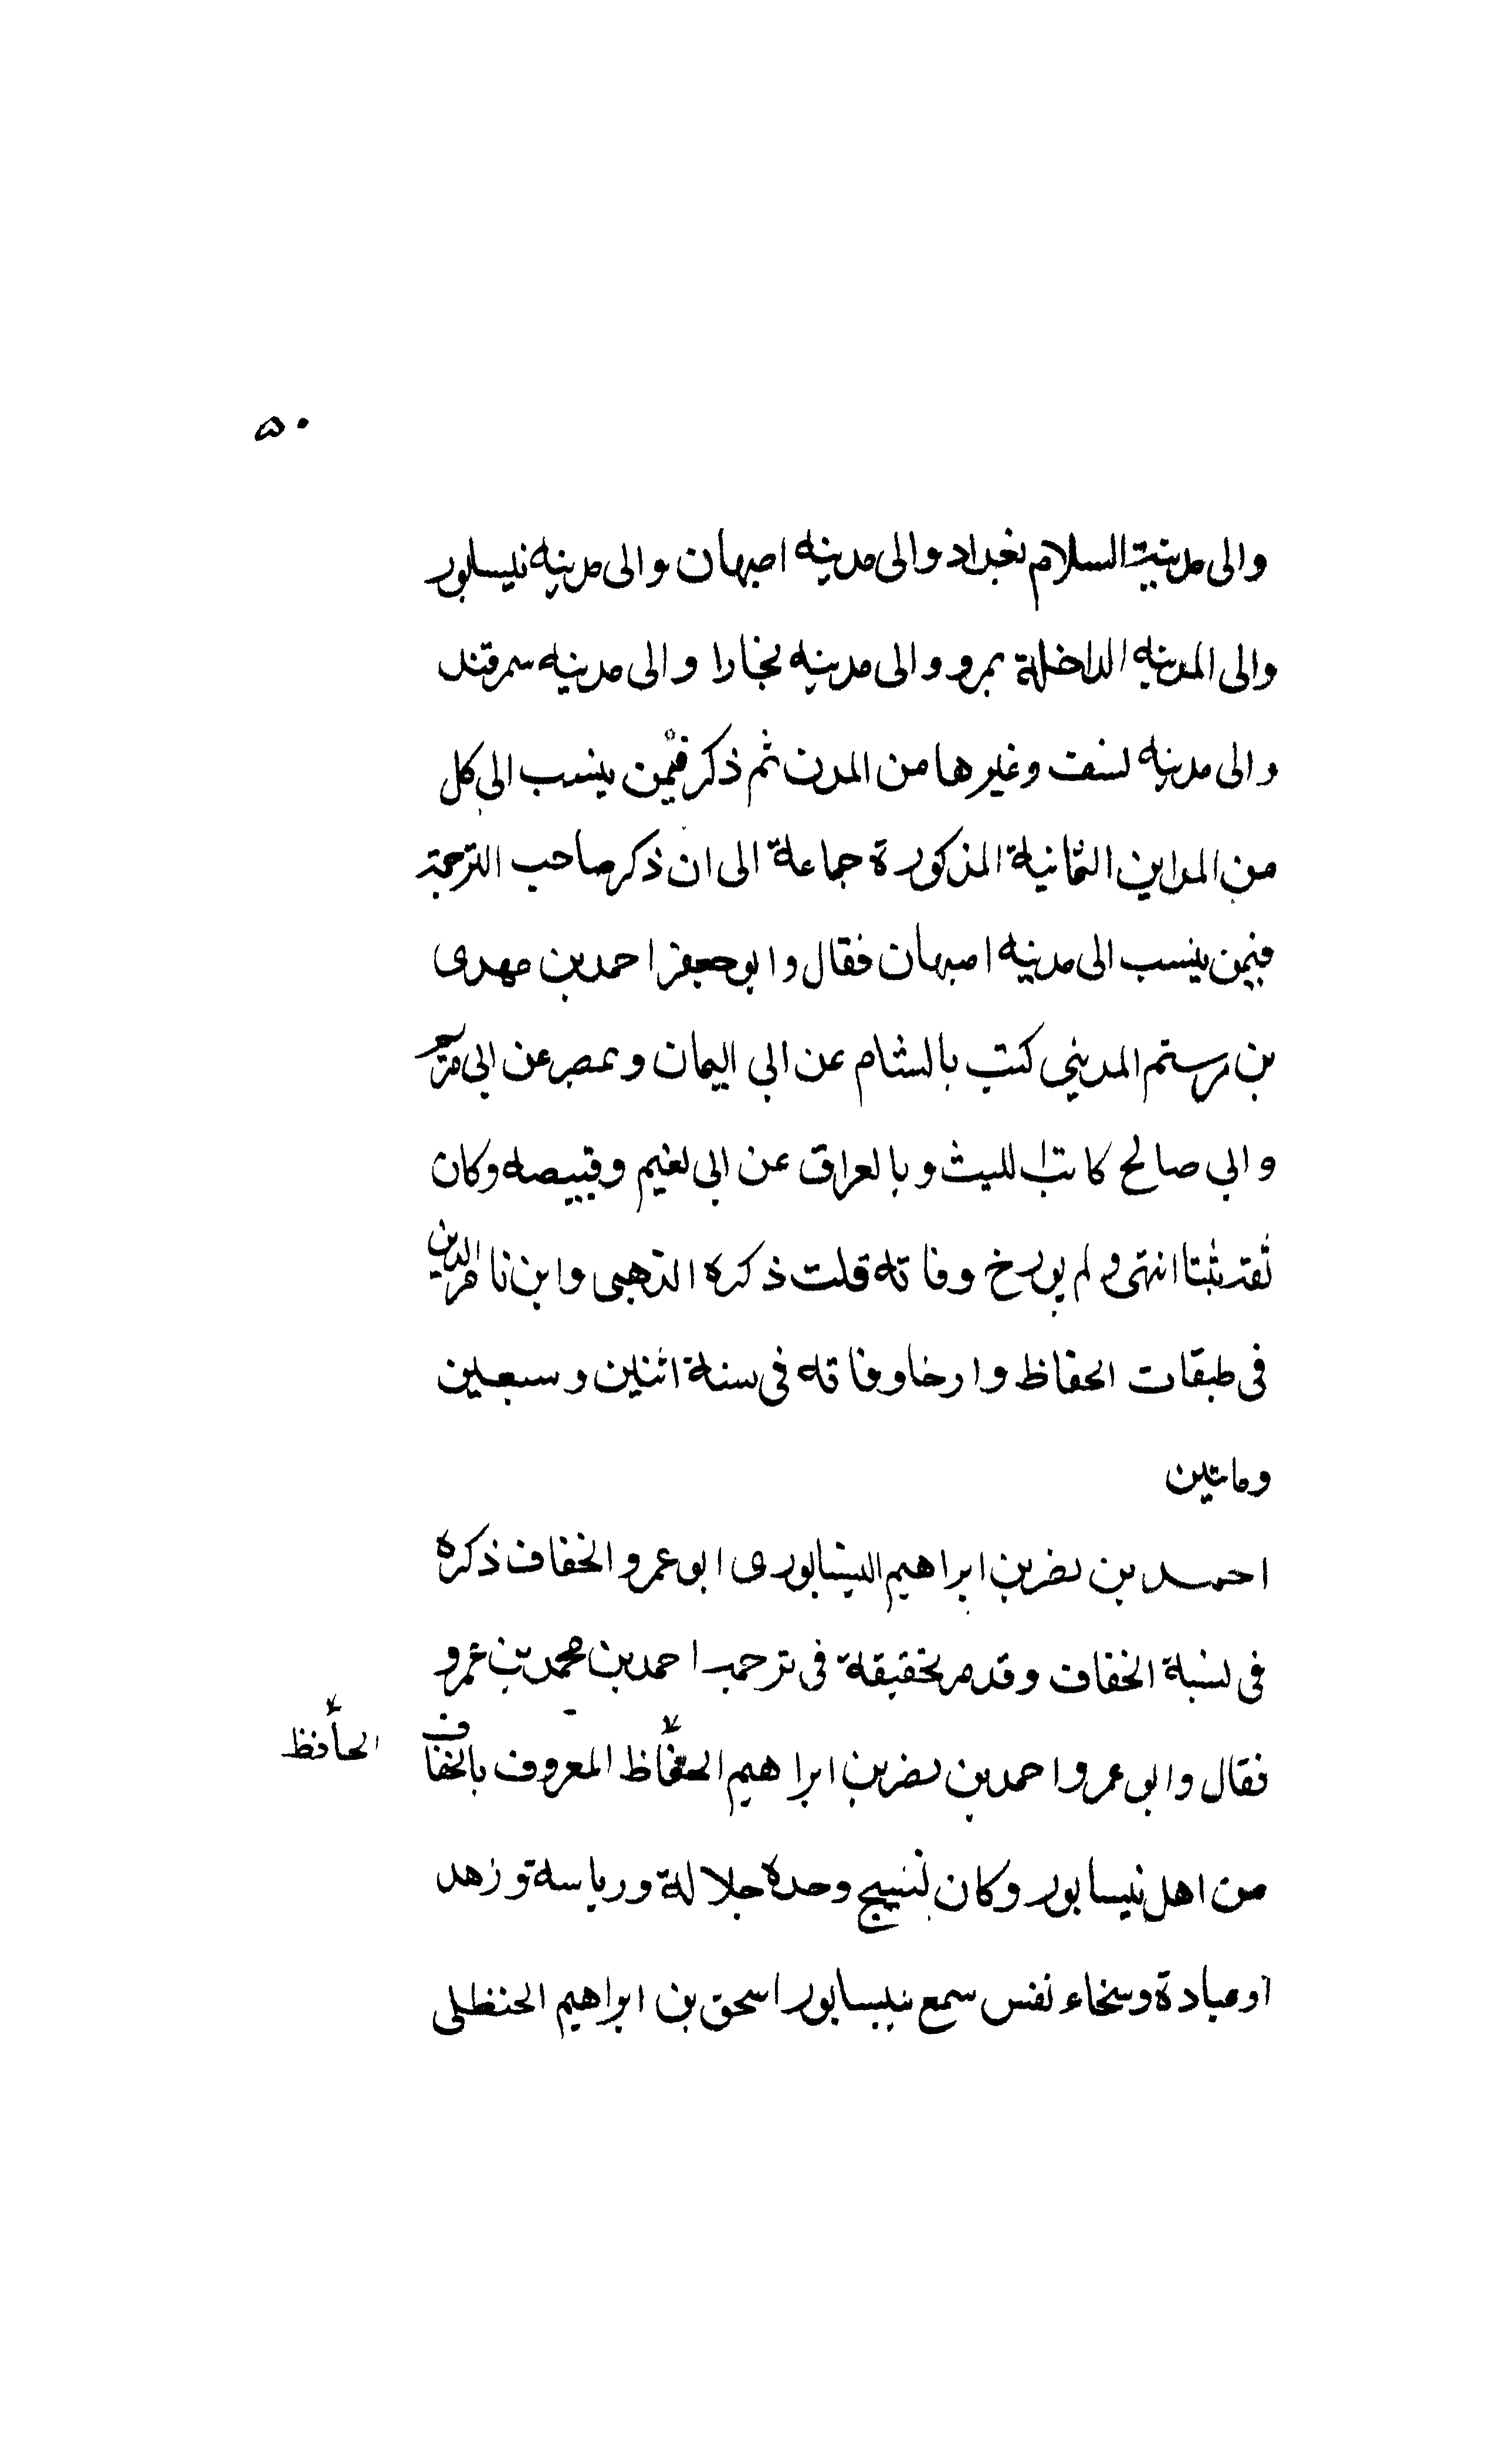 ٥٠
والى مدينة السلام بغداد والى مدينه اصبهان والى مدينه نيسابور
والى المدينه الداخلة بمرو والى مدينه بخارا والى مدينه سمرقند
والى مدينه نسف وغيرها من المدن ثم ذكر فيمن ينسب الى كل
من المداين الثمانية المذكورة جماعة الى ان ذكر صاحب الترجمة
فيمن ينسب الى مدينه اصبهان فقال وابو جعفر احمد بن مهدى
بن رستم المديني كتب بالشام عن ابي اليمان وبمصر عن ابي مريم
وابي صالح كاتب الليث وبالعراق عن ابي نعيم وقبيصه وكان
ثقة ثبتا انتهى ولم يورخ وفاته قلت ذكره الذهبى وابن ناصر الدين
فى طبقات الحفاظ وارخا وفاته فى سنة اثنين وسبعين
وماتين
احمد بن نصر بن ابراهيم النيسابورى ابو عمرو الخفاف ذكره
فى نسبة الخفاف وقدم تحقيقة فى ترجمه احمد بن محمد بن عمرو
فقال وابى عمرو احمد بن نصر بن ابراهيم الحفاظ المعروف بالخفاف
الحافظ
من اهل نيسابور وكان نسيج وحده جلالة ورياسة وزهد
او عبادة وسخاء نفس سمع بنيسابور اسحق بن ابراهيم الحنظلى